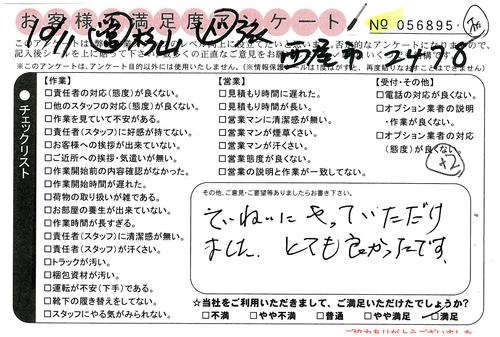 お客様満足度アンケート!
No 056895
10/11
西尾市 2478
【作業】
□責任者の対応(態度)が良くない。
□他のスタッフの対応(態度)が良くない。
□作業を見ていて不安がある。
□責任者(スタッフ)に好感が持てない。
□お客様への挨拶が出来ていない。
□ご近所への挨拶・気遣いが無い。
□作業開始前の内容確認がなかった。
□作業開始時間が遅れた。
□荷物の取り扱いが雑である。
□お部屋の養生が出来ていない。
□作業時間が長すぎる。
□責任者(スタッフ)に清潔感が無い。
□責任者(スタッフ)が汗くさい。
□トラックが汚い。
□梱包資材が汚い。
□運転が不安(下手)である。
□靴下の履き替えをしてない。
□スタッフにやる気がみられない。
チェックリスト
【営業】
□見積もり時間に遅れた。
□見積もり時間が長い。
□営業マンに清潔感が無い。
□営業マンが煙草くさい。
□営業マンが汗くさい。
□営業態度が良くない。
□営業の説明と作業が一致してない。
【受付・その他】
□電話の対応が良くない。
□オプション業者の説明
・作業が良くない。
□オプション業者の対応
(態度)が良くない。
×2
その他、ご意見・ご要望等ありましたらお書き下さい。
ていねいにやっていただけ
ました。とても良かったです。
☆当社をご利用いただきまして、ご満足いただけたでしょうか?
□不満 □やや不満 □普通 □やや満足 □満足
ご協力ありがとうございました